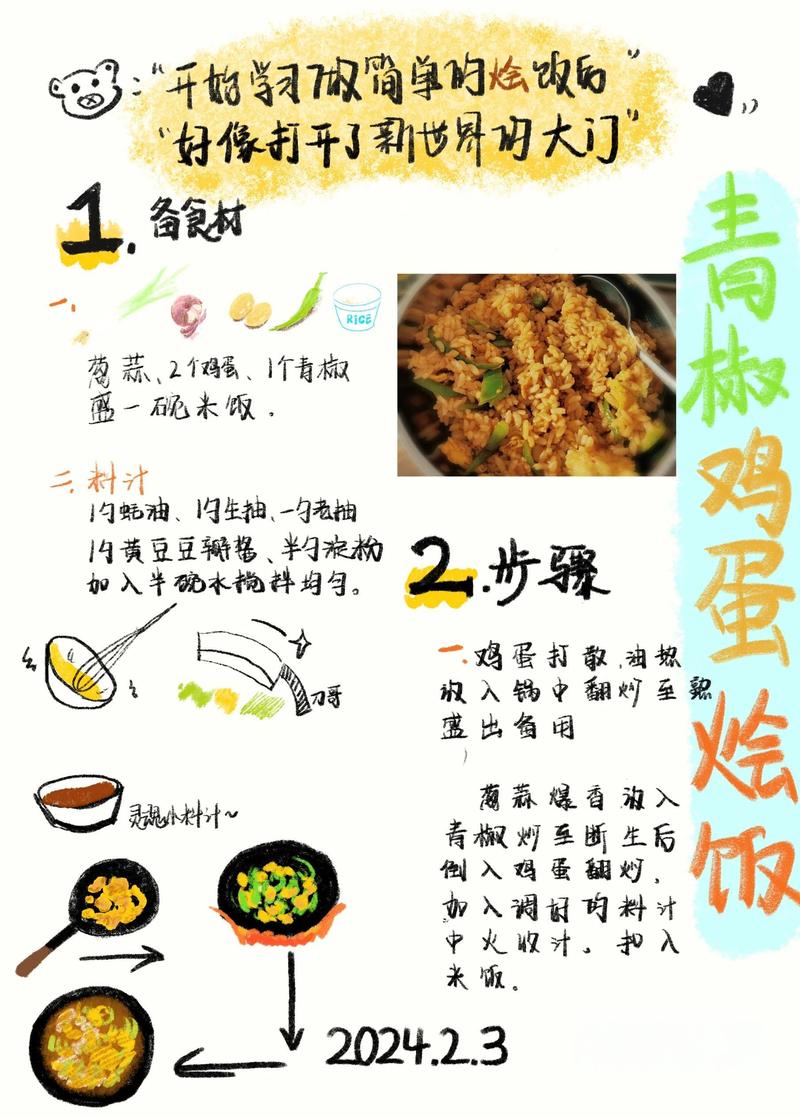 “开始学习做简单的烩饭后”
“好像打开了新世界的大门”
青椒鸡蛋烩饭
1.备食材
一.
RICE
葱蒜、2个鸡蛋、1个青椒
盛一碗米饭。
二.料汁
1勺蚝油、1勺生抽、一勺老抽
1勺黄豆豆瓣酱、半勺淀粉
加入半碗水搅拌均匀。
刀哥
灵魂小料汁~
2.步骤
一.鸡蛋打散,油热
放入锅中翻炒至熟
盛出备用
葱蒜爆香放入
青椒炒至断生后
倒入鸡蛋翻炒,
加入调好的料汁
中火收汁。扣入
米饭。
2024.2.3